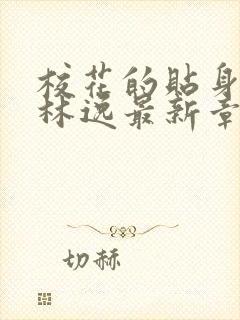 校花的貼身
林逸最新章
切赫